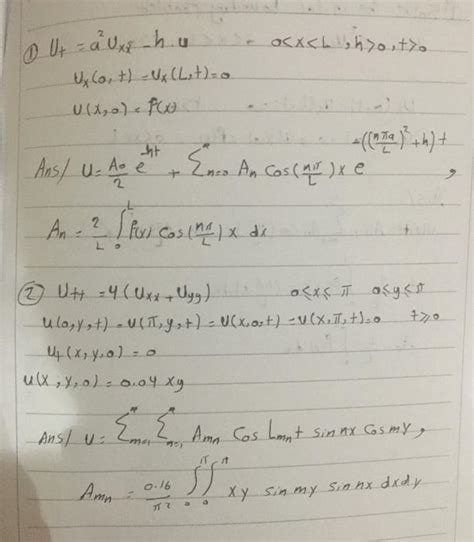 ① U_t = a² U_xx - h.u    0<x<L, h>0, t>0
U_x(0,t) = U_x(L,t) = 0
U(x,0) = f(x)
Ans/ U = A₀/2 e^{-ht} + Σ_{n=0}^{∞} A_n Cos(nπ/L)x e^{-((nπa/L)² + h)t},
A_n = 2/L ∫_0^L f(x) Cos(nπ/L)x dx
② U_tt = 4(U_xx + U_yy)    0≤x≤π  0≤y≤π
u(0,y,t) = u(π,y,t) = u(x,0,t) = u(x,π,t) = 0    t≥0
U_t(x,y,0) = 0
u(x,y,0) = 0.04 xy
Ans/ U = Σ_{m=1}^{∞} Σ_{n=1}^{∞} A_mn Cos L_mn t sin nx Cos my,
A_mn = 0.16/π² ∫_0^π ∫_0^π xy sin my sin nx dx dy